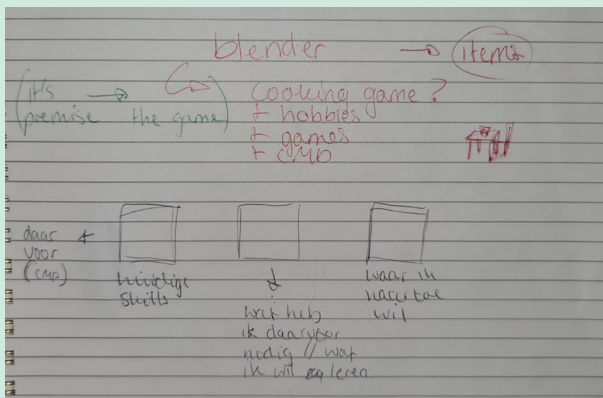 blender → items
(it's → the game)
premise
cooking game?
+ hobbies
+ games
+ CMD
daar +
voor
(CMD)
huidige
skills
wat heb
ik daarvoor
nodig // wat
ik wil leren
waar ik
naartoe
wil